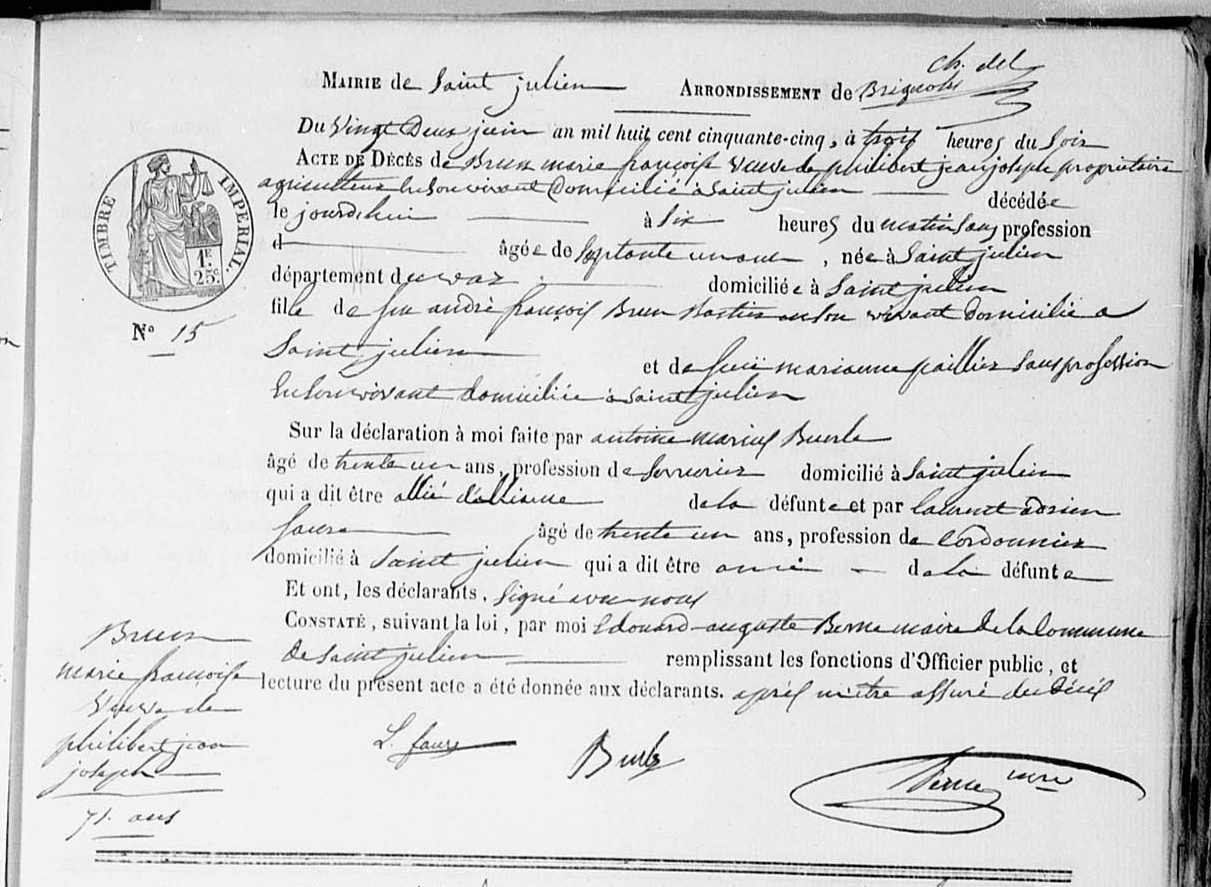 ch. de
MAIRIE de Saint julien ARRONDISSEMENT de Brignoles
Du Vingt Deux juin an mil huit cent cinquante-cinq, à trois heures du Soir
ACTE DE DÉCÈS de Brun marie françoise veuve de philibert jean joseph propriétaire
agriculteur En Son vivant Domicilié à Saint julien décédée
le jourdhui à Six heures du matin Sans profession
d âgée de Septante un ans, née à Saint julien
département du var domiciliée à Saint julien
fille de feu andré françois Brun en Son vivant Domicilié a
Saint julien et de feuë marianne paillier Sans profession
En Son vivant domiciliée à Saint julien
Sur la déclaration à moi faite par antoine marius Burle
âgé de trente un ans, profession de Serrurier domicilié à Saint julien
qui a dit être allié d'alliance de la défunte et par laurent adrien
faure âgé de trente un ans, profession de Cordonnier
domicilié à Saint julien qui a dit être ami de la défunte
Et ont, les déclarants, Signé avec nous
CONSTATÉ, suivant la loi, par moi Edouard auguste Berne maire de la Commune
de Saint julien remplissant les fonctions d'Officier public, et
lecture du présent acte a été donnée aux déclarants. après m'être assuré du Décès
TIMBRE IMPERIAL.
1F
25c
N° 15
Brun
marie françoise
Veuve de
philibert jean
joseph
71. ans
L. faure
Burle
Berne mre